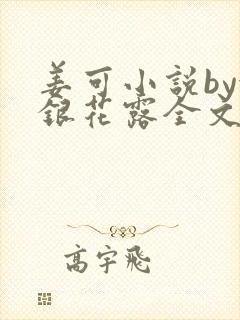 姜可小說by
銀花露全文
高宇飛